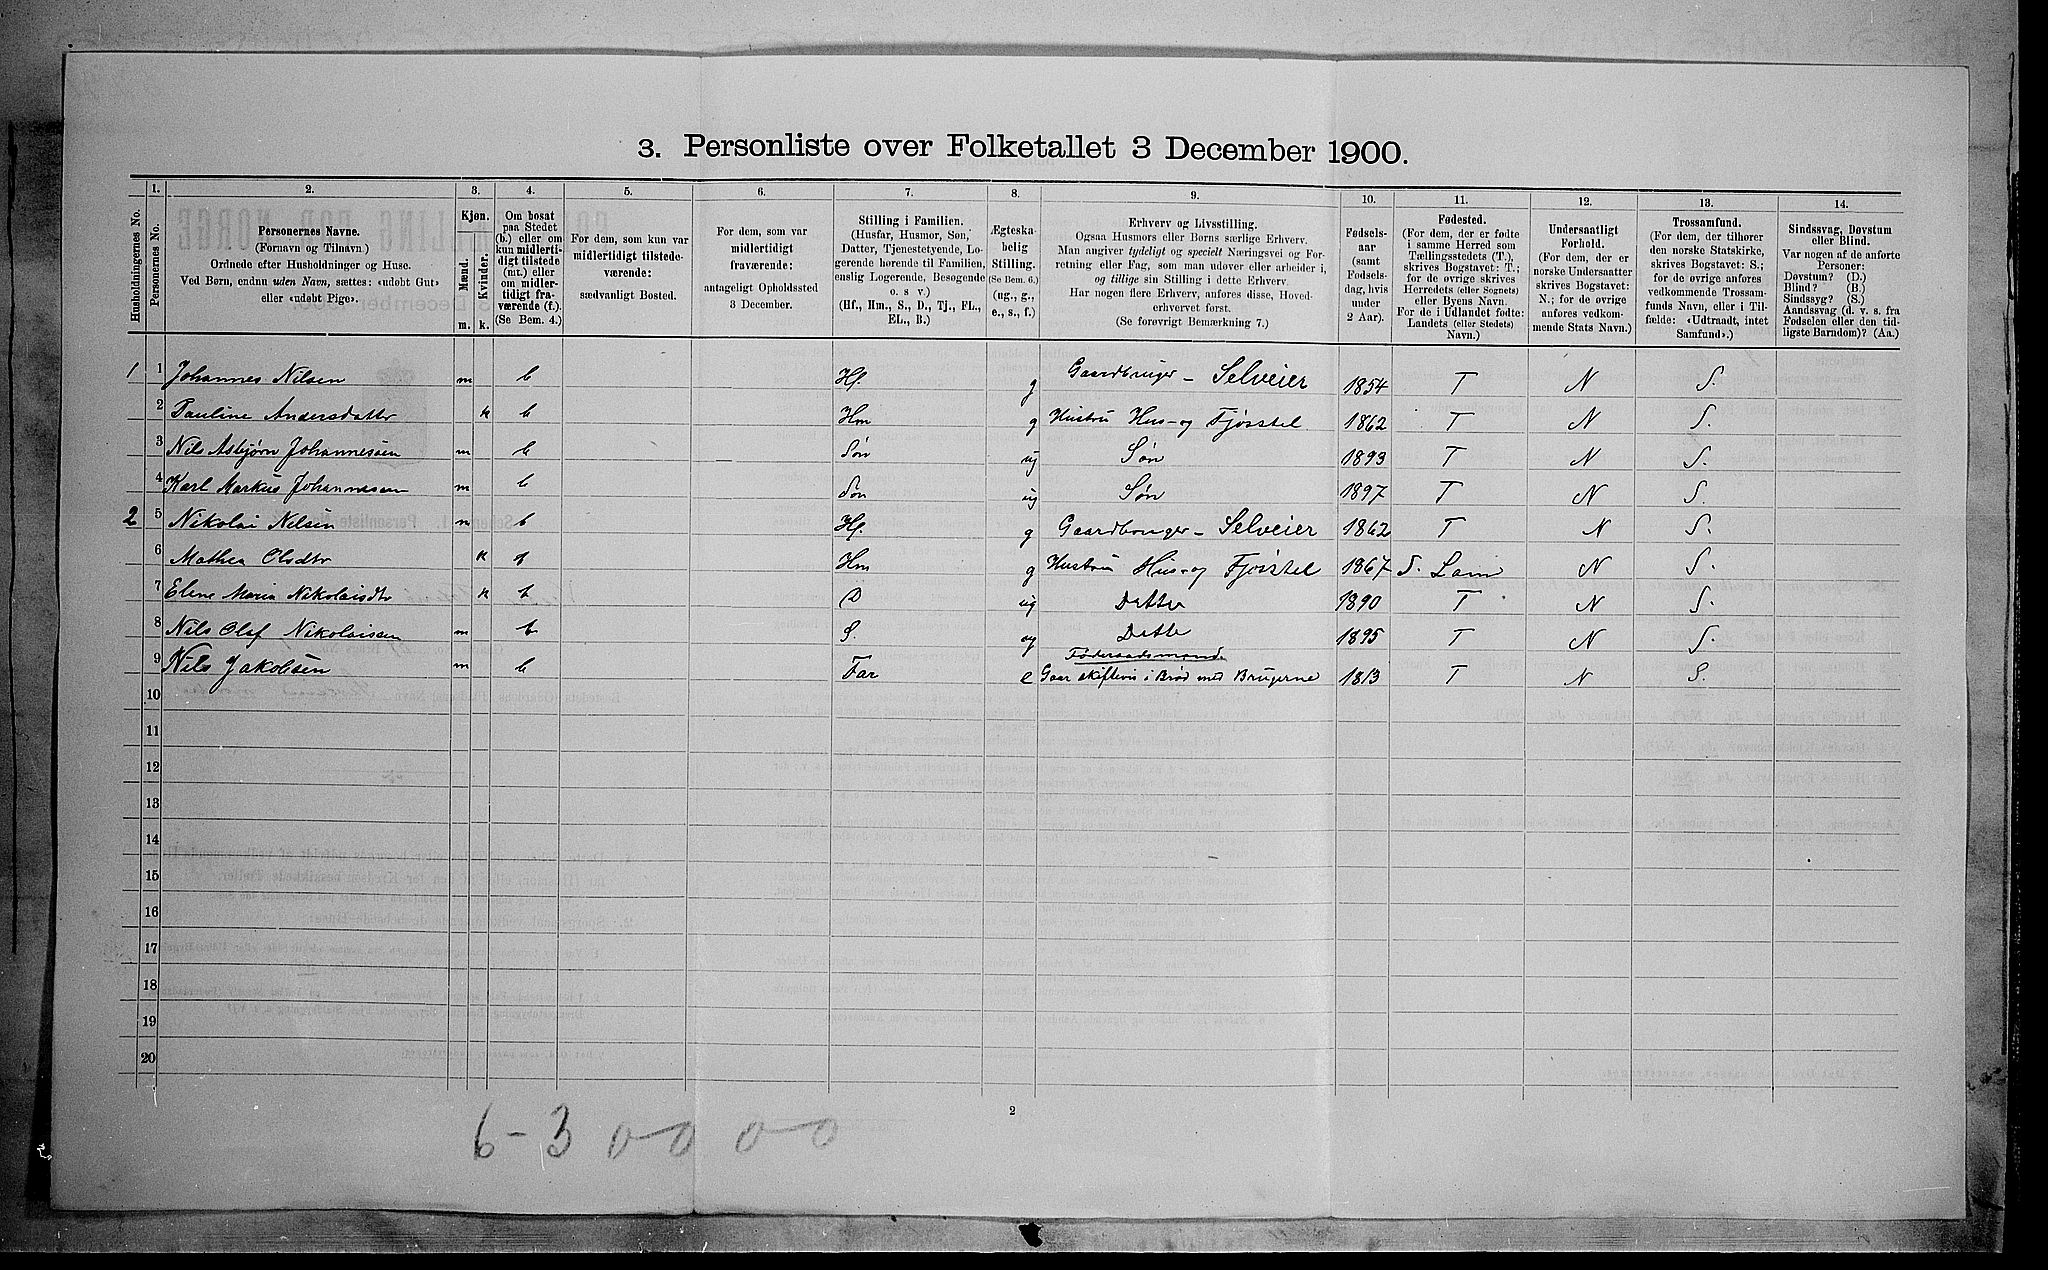 3. Personliste over Folketallet 3 December 1900.
Husholdningernes No.
1.
Personernes No.
2.
Personernes Navne.
(Fornavn og Tilnavn.)
Ordnede efter Husholdninger og Huse.
Ved Børn, endnu uden Navn, sættes: «udøbt Gut»
eller «udøbt Pige».
3.
Kjøn.
Mænd.
Kvinder.
m.
k.
4.
Om bosat
paa Stedet
(b.) eller om
kun midlerti-
digt tilstede
(mt.) eller
om midler-
tidigt fra-
værende (f.).
(Se Bem. 4.)
5.
For dem, som kun var
midlertidigt tilstede-
værende:
sædvanligt Bosted.
6.
For dem, som var
midlertidigt
fraværende:
antageligt Opholdssted
3 December.
7.
Stilling i Familien.
(Husfar, Husmor, Søn,
Datter, Tjenestetyende, Lo-
gerende hørende til Familien,
enslig Logerende, Besøgende
o. s v.)
(Hf., Hm., S., D., Tj., FL.,
EL., B.)
8.
Ægteska-
belig
Stilling.
(Se Bem. 6.)
(ug., g.,
e., s., f.)
9.
Erhverv og Livsstilling.
Ogsaa Husmors eller Børns særlige Erhverv.
Man angiver tydeligt og specielt Næringsvei og For-
retning eller Fag, som man udøver eller arbeider i,
og tillige sin Stilling i dette Erhverv.
Har nogen flere Erhverv, anføres disse, Hoved-
erhvervet først.
(Se forøvrigt Bemærkning 7.)
10.
Fødsels-
aar
(samt
Fødsels-
dag, hvis
under
2 Aar).
11.
Fødested.
(For dem, der er fødte
i samme Herred som
Tællingsstedets (T.),
skrives Bogstavet: T.;
for de øvrige skrives
Herredets (eller Sognets)
eller Byens Navn.
For de i Udlandet fødte:
Landets (eller Stedets)
Navn.)
12.
Undersaatligt
Forhold.
(For dem, der er
norske Undersaatter
skrives Bogstavet:
N.; for de øvrige
anføres vedkom-
mende Stats Navn.)
13.
Trossamfund.
(For dem, der tilhører
den norske Statskirke,
skrives Bogstavet: S.;
for de øvrige anføres
vedkommende Trossam-
funds Navn, eller i Til-
fælde: «Udtraadt, intet
Samfund».)
14.
Sindssvag, Døvstum
eller Blind.
Var nogen af de anførte
Personer:
Døvstum? (D.)
Blind? (B.)
Sindssyg? (S.)
Aandssvag (d. v. s. fra
Fødselen eller den tid-
ligste Barndom)? (Aa.)
1 1 Johannes Nilsen m b Hf. g Gaardbruger - Selveier 1854 T N S.
2 Pauline Andersdatter k b Hm g Hustru Hus- og Fjøsstel 1862 T N S.
3 Nils Asbjørn Johannessen m b Søn ug Søn 1893 T N S.
4 Karl Markus Johannesen m b Søn ug Søn 1897 T N S.
2 5 Nikolai Nelsen m b Hf. g Gaardbruger - Selveier 1862 T N S.
6 Mathea Olsdtr k b Hm g Hustru Hus- og Fjøsstel 1867 S. N S.
7 Elene Maria Nikolaisdtr k b D ug Datter 1890 T N S.
8 Nils Olaf Nikolaissen m b S. ug Dette 1895 T N S.
Føderaadsmand
9 Nils Jakobsen m b Far e Gaar skiftevis i Brød med Brugerne 1813 T N S.
10
11
12
13
14
15
16
17
18
19
20
2
6-3 0-0 0-0